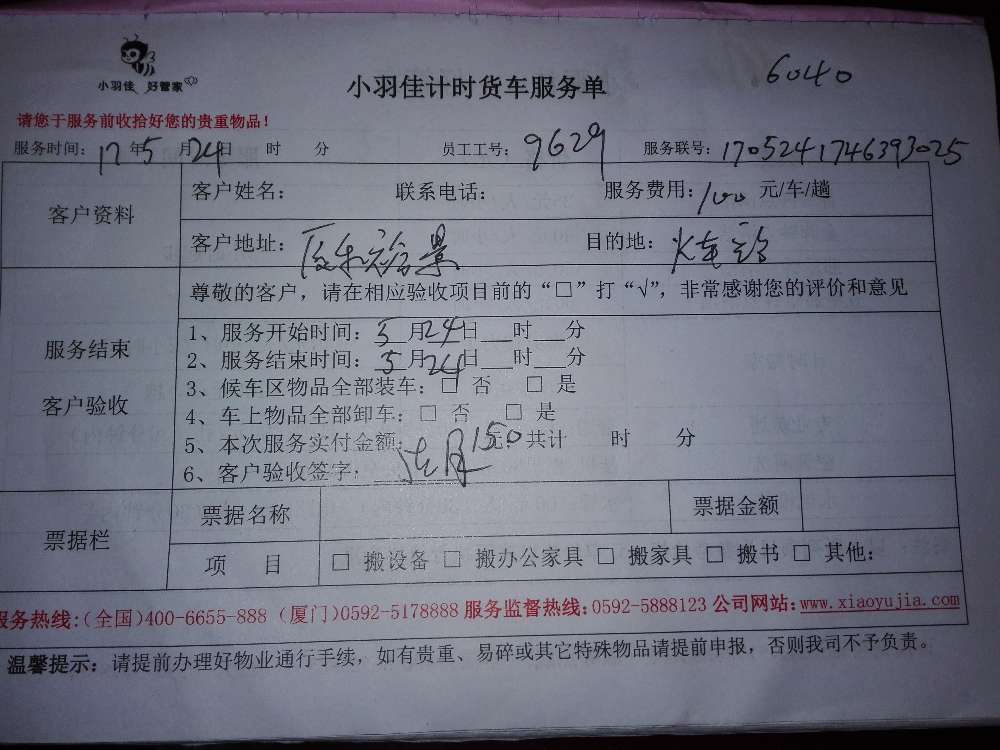 小羽佳 好管家
小羽佳计时货车服务单
6040
请您于服务前收拾好您的贵重物品！
服务时间：17年5月24日 时 分 员工工号：9629 服务联号：1705241746393025
客户资料
客户姓名： 联系电话： 服务费用：100 元/车/趟
客户地址： 景 目的地：火车站
服务结束
客户验收
尊敬的客户，请在相应验收项目前的“□”打“√”，非常感谢您的评价和意见
1、服务开始时间：5月24日___时___分
2、服务结束时间：5月24日___时___分
3、候车区物品全部装车：□ 否 □ 是
4、车上物品全部卸车：□ 否 □ 是
5、本次服务实付金额：150元 共计 时 分
6、客户验收签字：
票据栏
票据名称 票据金额
项 目 □ 搬设备 □ 搬办公家具 □ 搬家具 □ 搬书 □ 其他：
服务热线：(全国)400-6655-888 (厦门)0592-5178888 服务监督热线：0592-5888123 公司网站：www.xiaoyujia.com
温馨提示：请提前办理好物业通行手续，如有贵重、易碎或其它特殊物品请提前申报，否则我司不予负责。